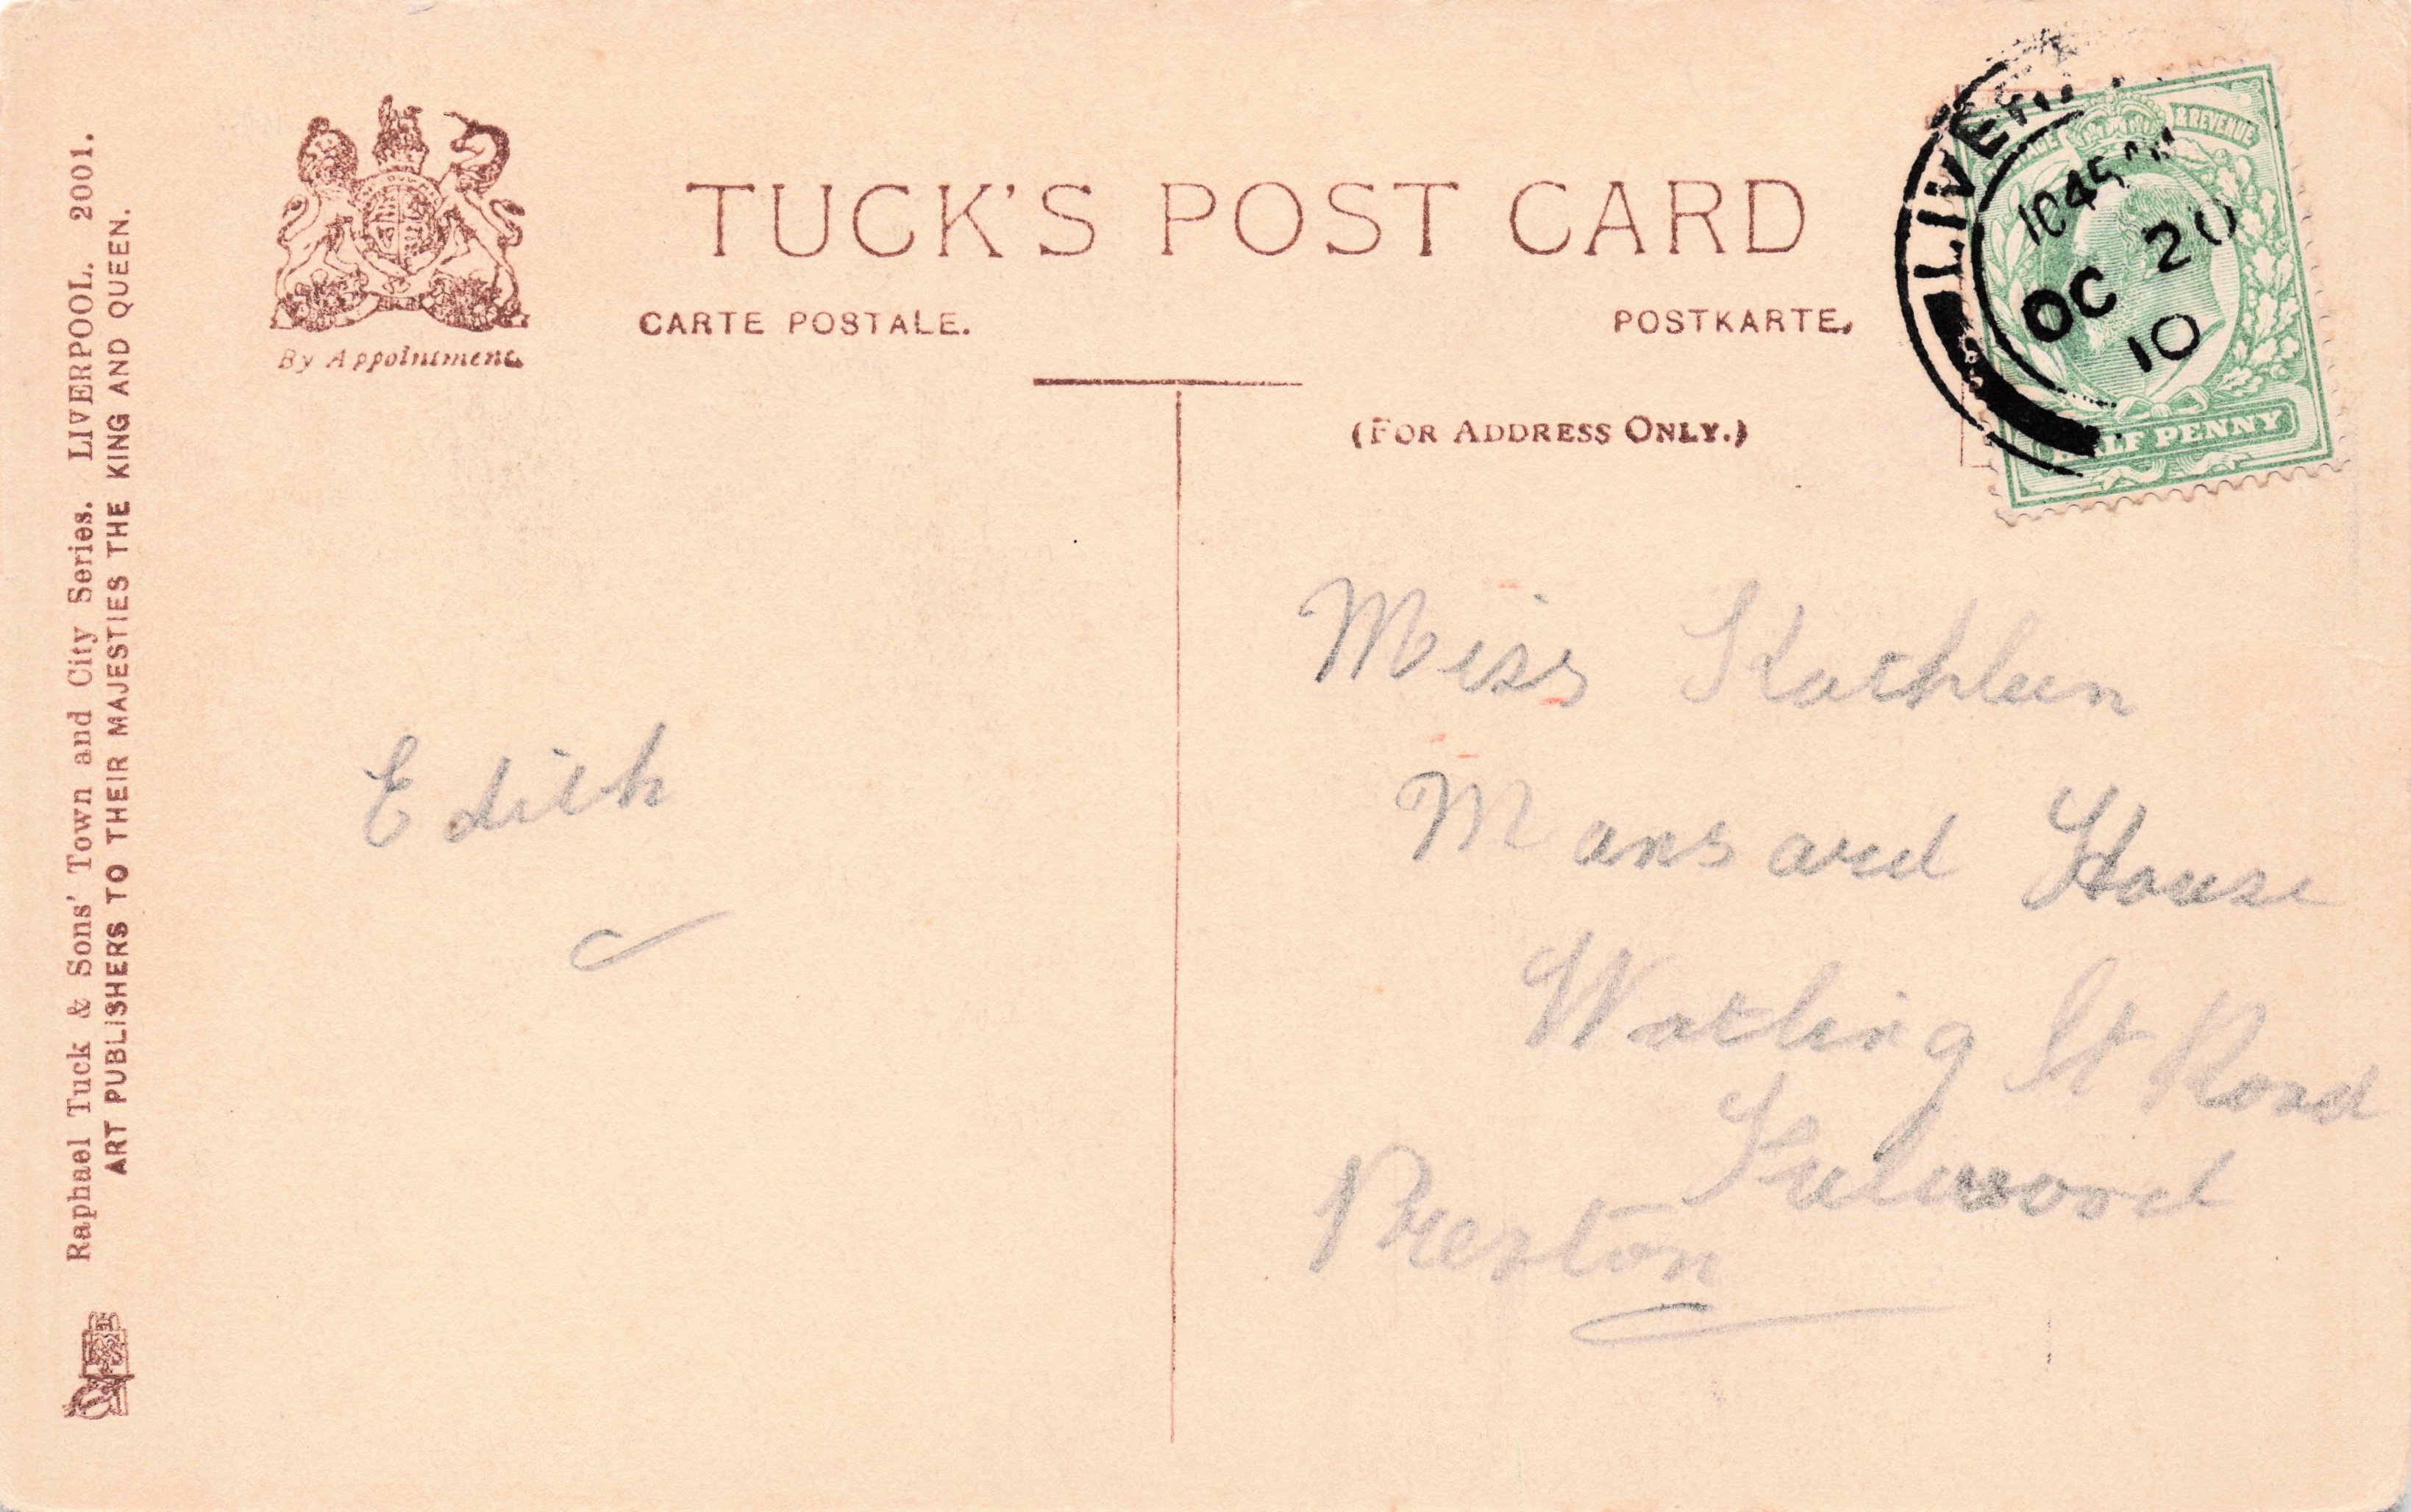 TUCK'S POST CARD
By Appointment.
CARTE POSTALE.
POSTKARTE.
(FOR ADDRESS ONLY.)
Raphael Tuck & Sons' Town and City Series. LIVERPOOL. 2001.
ART PUBLISHERS TO THEIR MAJESTIES THE KING AND QUEEN.
& REVENUE
HALF PENNY
OC 20
10
Edith
Miss Kathleen
Mansard House
Watling St Road
Fulwood
Preston